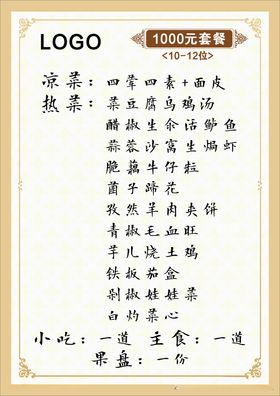 LOGO
1000元套餐
<10-12位>
凉菜：四荤四素+面皮
热菜：菜豆腐乌鸡汤
醋椒生汆活鲈鱼
蒜蓉沙窝生焗虾
脆藕牛仔粒
菌子蹄花
孜然羊肉夹饼
青椒毛血旺
芋儿烧土鸡
铁板茄盒
剁椒娃娃菜
白灼菜心
小吃：一道 主食：一道
果盘：一份